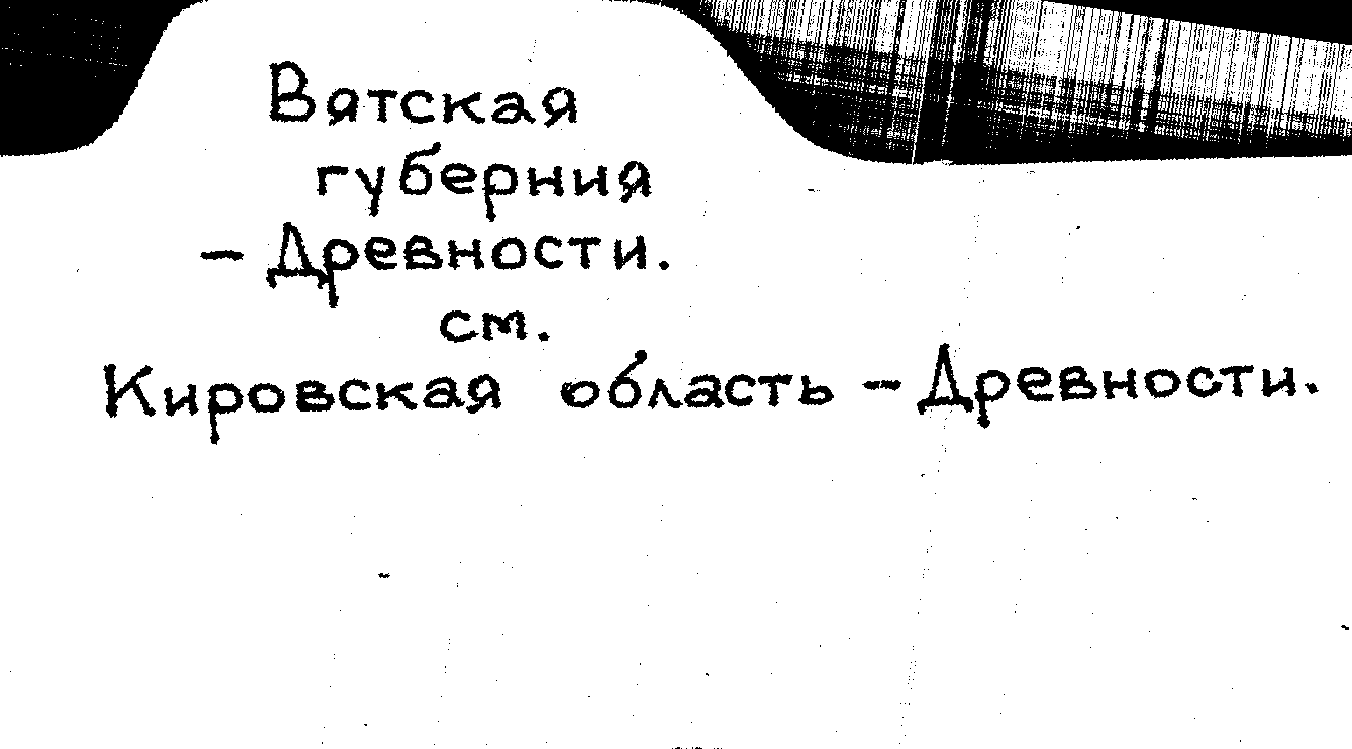 Вятская
губерния
– Древности.
см.
Кировская область – Древности.